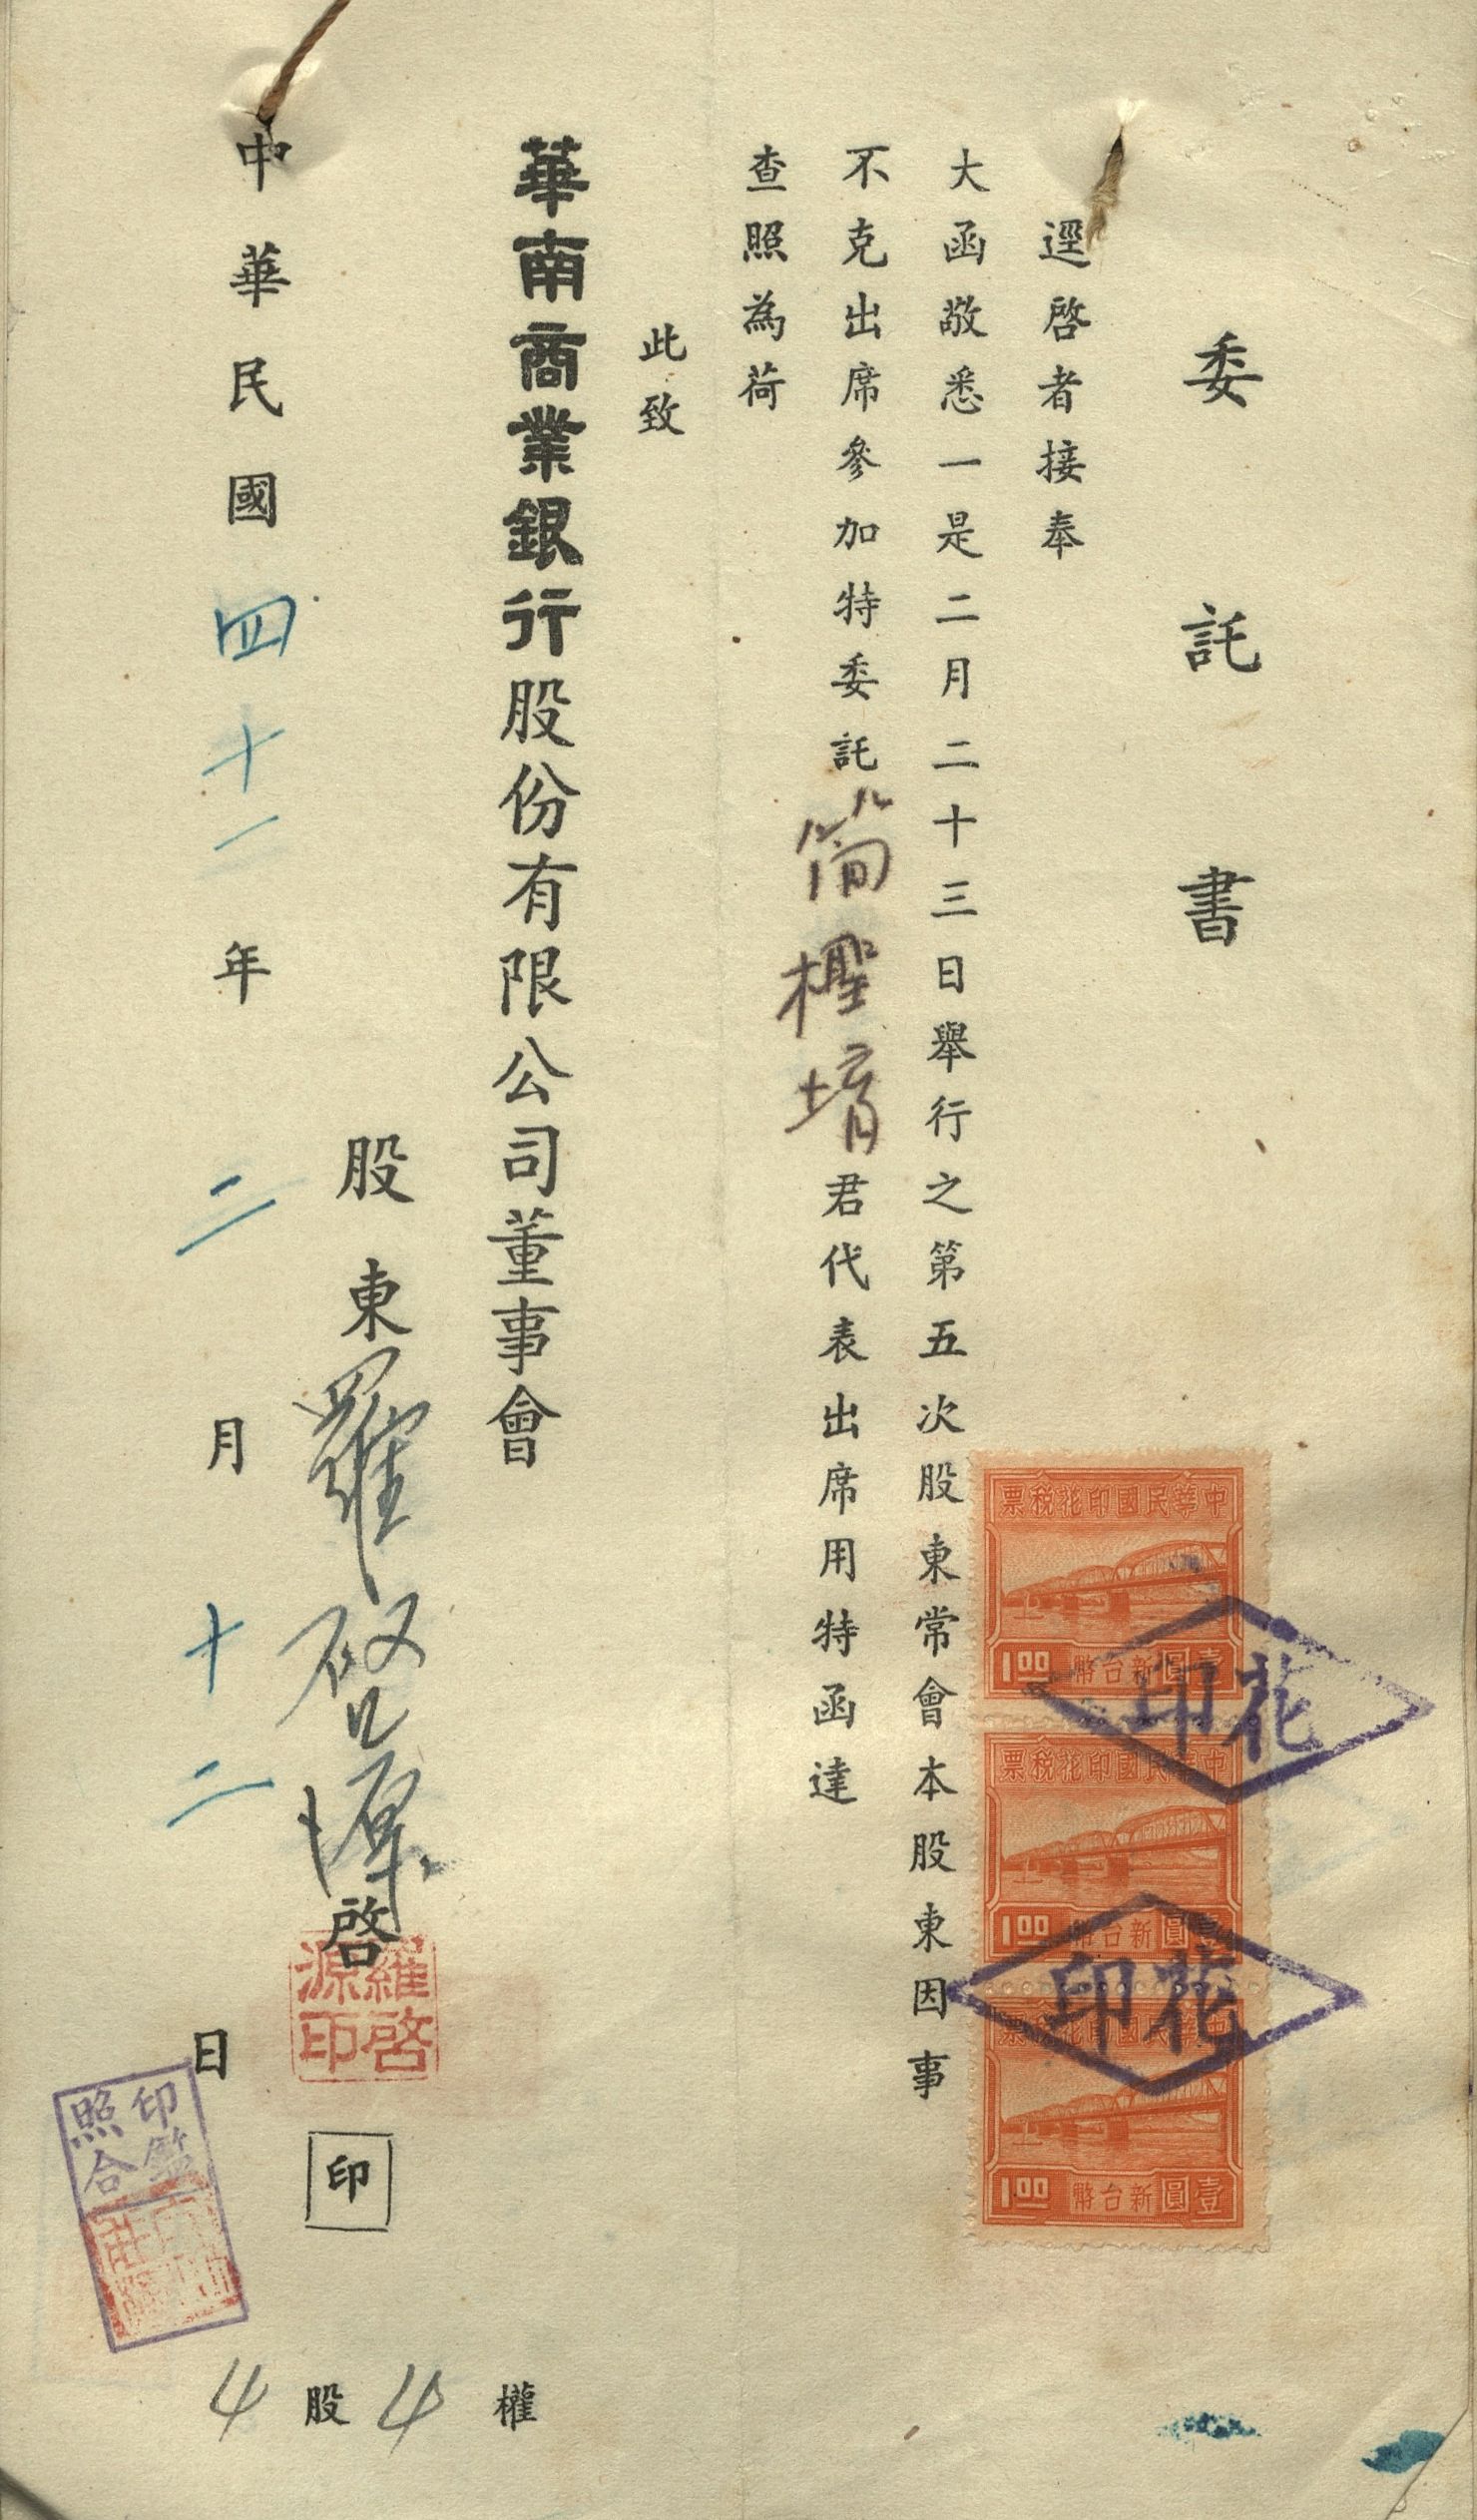 委託書
逕啓者接奉
大函敬悉一是二月二十三日舉行之第五次股東常會本股東因事
不克出席參加特委託簡檉堉君代表出席用特函達
查照為荷
此致
華南商業銀行股份有限公司董事會
股東羅啓源啓
羅啓源印
印
中華民國四十一年二月十二日
4股4權
印鑑照合
中華民國印花稅票
壹圓新台幣
1.00
中華民國印花稅票
壹圓新台幣
1.00
中華民國印花稅票
壹圓新台幣
1.00
印花
印花